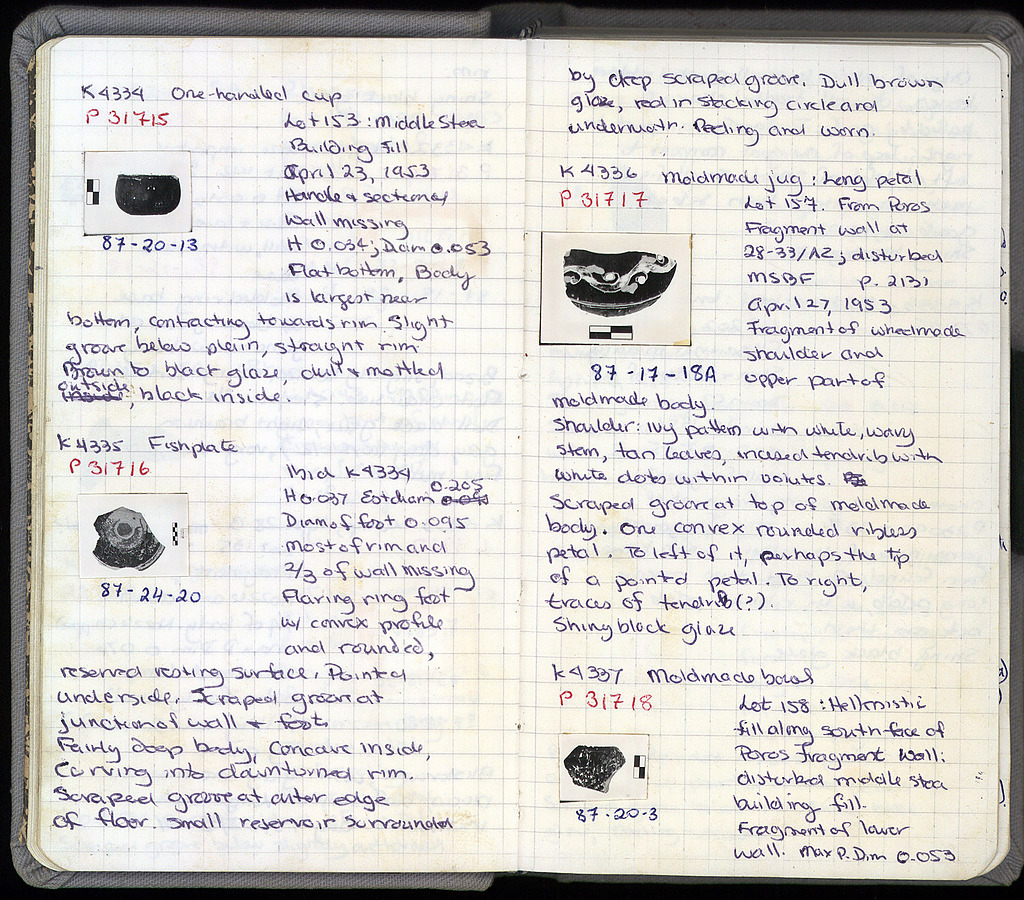 K 4334 One-handled cup
P 31715
Lot 153 : Middle Stoa
Building fill
April 23, 1953
Handle & section of
wall missing
H 0.034; Diam 0.053
87-20-13
Flat bottom, Body
is largest near
bottom, contracting towards rim. Slight
groove below plain, straight rim
Brown to black glaze, dull & mottled
outside
inside, black inside.
K 4335 Fishplate
P 31716
Ibid K4334
0.205
H 0.037 Est diam
Diam of foot 0.095
most of rim and
2/3 of wall missing
87-24-20
Flaring ring foot
w/ convex profile
and rounded,
reserved resting surface. Pointed
underside. Scraped groove at
junction of wall & foot.
Fairly deep body, concave inside,
Curving into downturned rim.
Scraped groove at outer edge
of floor. Small reservoir surrounded
by deep scraped groove. Dull brown
glaze, red in stacking circle and
underneath. Peeling and worn.
K 4336 Moldmade jug : Long petal
P 31717
Lot 157. From Poros
Fragment wall at
28-33/AZ; disturbed
MSBF p. 2131
April 27, 1953
Fragment of wheelmade
shoulder and
87-17-18A
upper part of
moldmade body.
Shoulder: Ivy pattern with white, wavy
stem, tan leaves, incised tendrils with
white dots within volutes.
Scraped groove at top of moldmade
body. One convex rounded ribless
petal. To left of it, perhaps the tip
of a pointed petal. To right,
traces of tendril (?).
Shiny black glaze
K 4337 Moldmade bowl
P 31718
Lot 158 : Hellenistic
fill along south face of
Poros Fragment Wall:
disturbed middle stoa
building fill.
87-20-3
Fragment of lower
wall. Max P. Dim 0.053